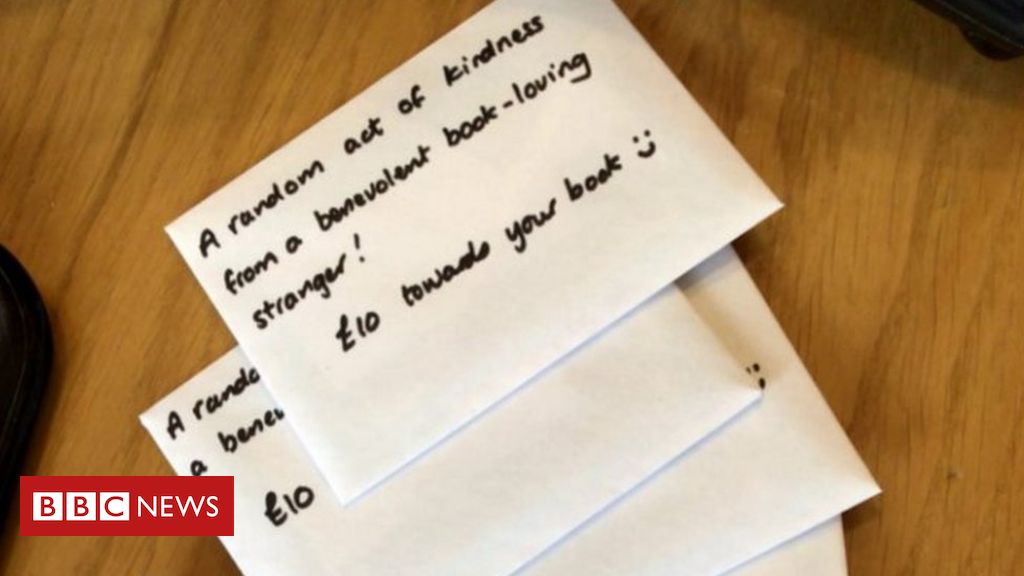 A random act of kindness
from a benevolent book-loving
stranger!
£10 towards your book :)
A rando
a benev
£10
:)
BBC NEWS